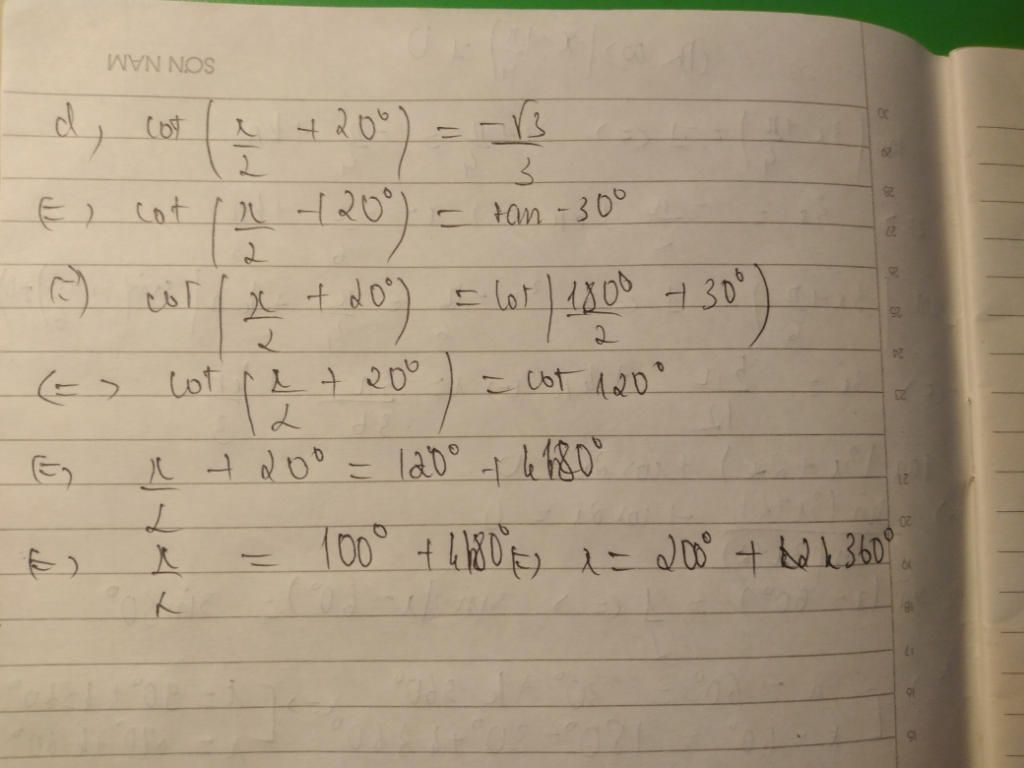 SON NAM
d, cot (x/2 + 20°) = -√3/3
(=) cot (x/2 + 20°) = tan -30°
(=) cot (x/2 + 20°) = cot (180°/2 + 30°)
<=> cot (x/2 + 20°) = cot 120°
(=) x/2 + 20° = 120° + k180°
(=) x/2 = 100° + k180° (=) x = 200° + k360°